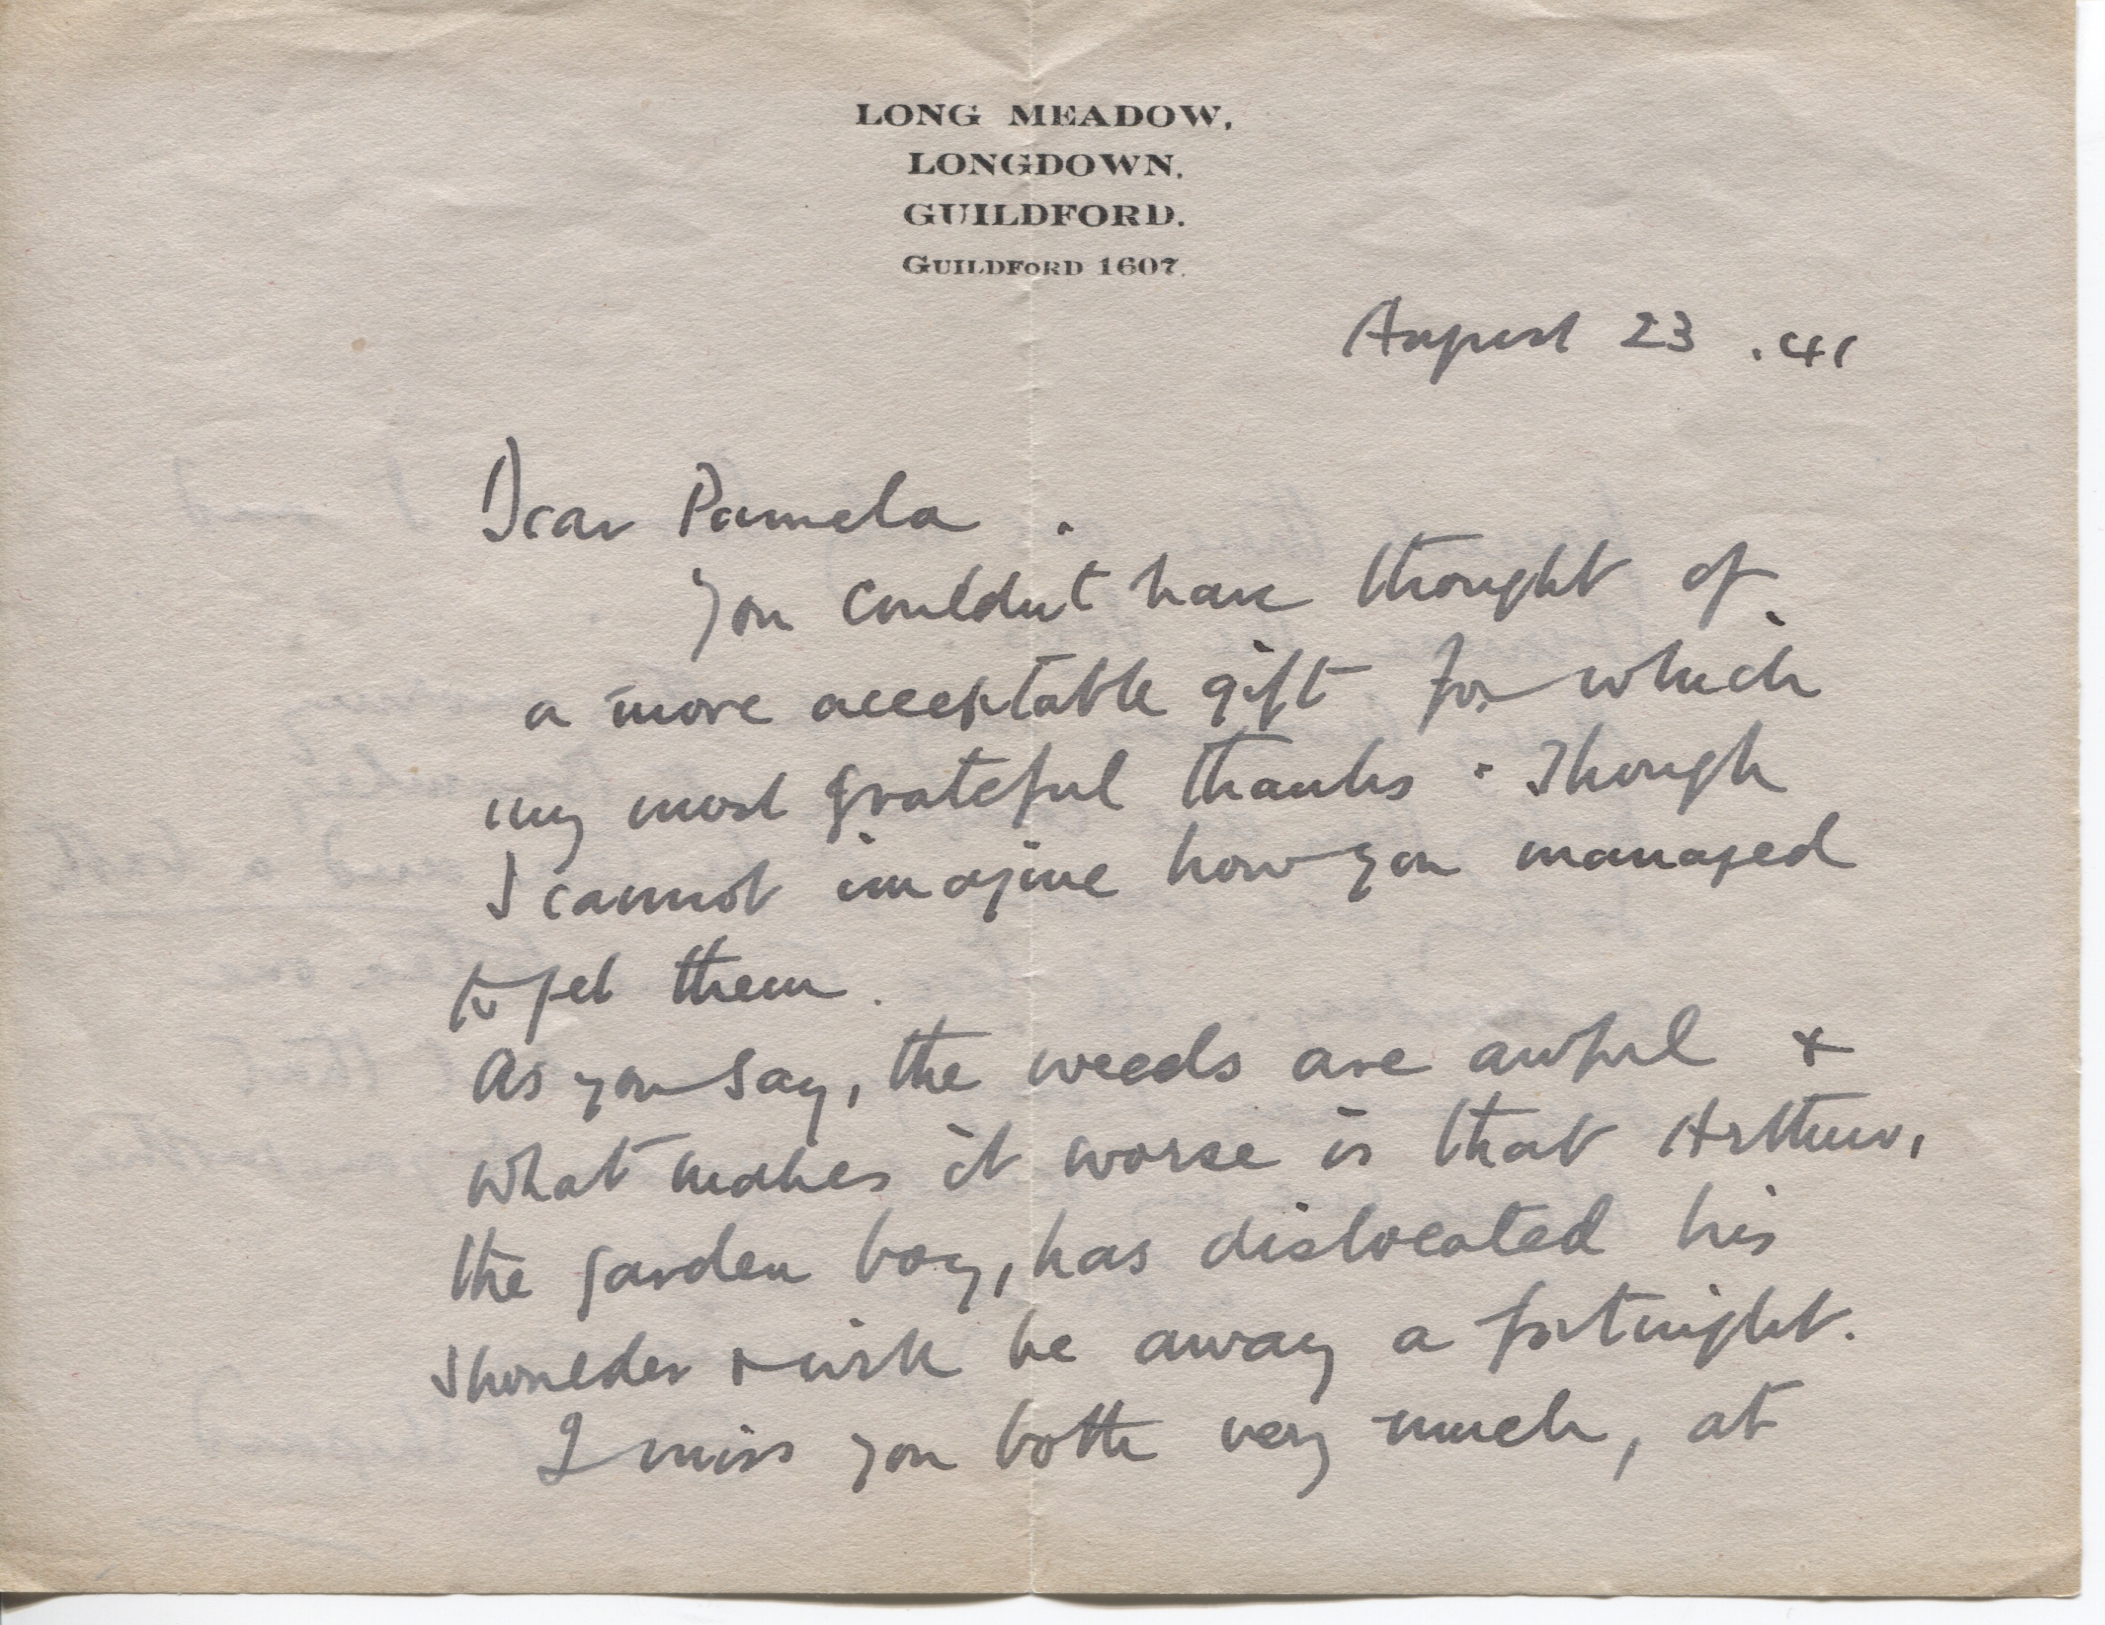 LONG MEADOW,
LONGDOWN,
GUILDFORD.
GUILDFORD 1607.
August 23 .41
Dear Pamela.
You couldn't have thought of
a more acceptable gift for which
my most grateful thanks. Though
I cannot imagine how you managed
to get them.
As you say, the weeds are awful +
what makes it worse is that Arthur,
the garden boy, has dislocated his
shoulder + will be away a fortnight.
I miss you both very much, at